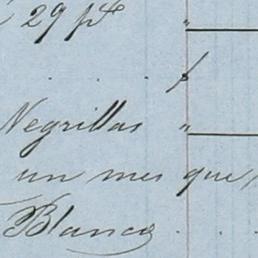 29 pf "
Negrillas "
un mes que
Blanco